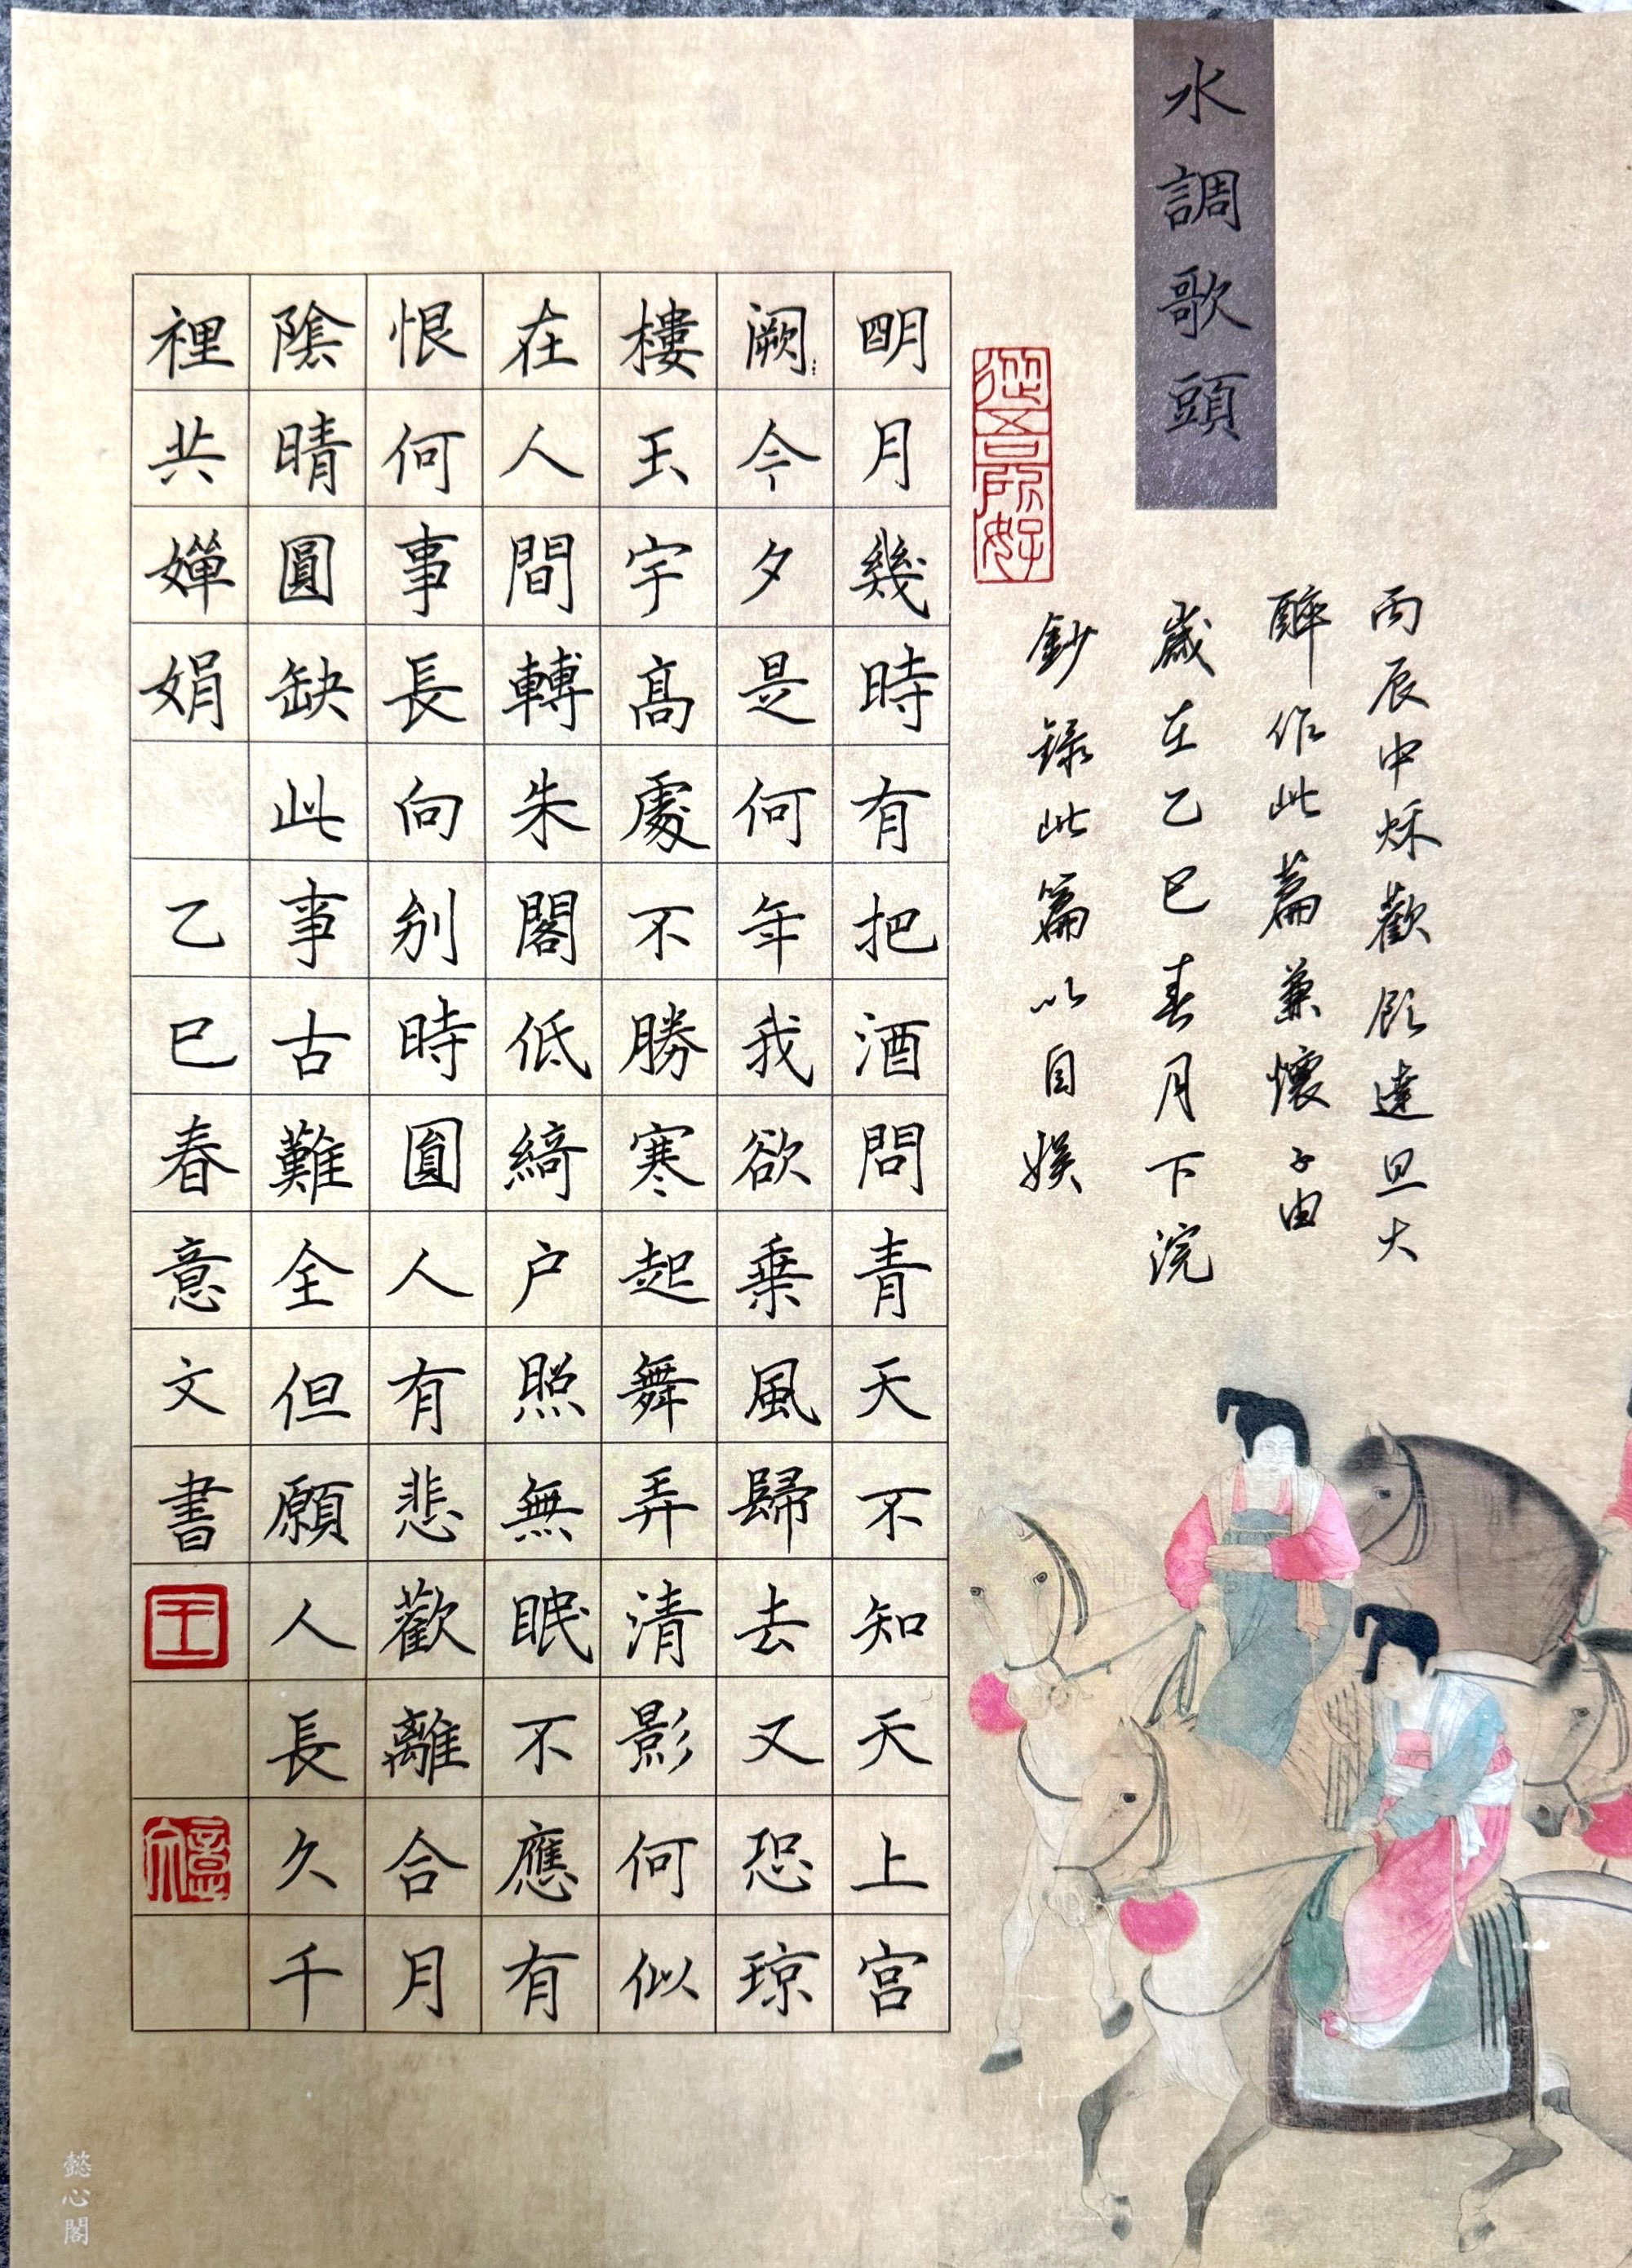 水調歌頭
丙辰中秌歡飲達旦大
醉作此篇兼懷子由
歲在乙巳春月下浣
鈔錄此篇以自娛
從吾所好
明月幾時有把酒問青天不知天上宮
阙今夕是何年我欲乗風歸去又恐琼
樓玉宇髙處不勝寒起舞弄清影何似
在人間轉朱閣低綺户照無眠不應有
恨何事長向别時圓人有悲歡離合月
陰晴圓缺此事古難全但願人長久千
裡共嬋娟 乙巳春意文書
王
意文
懿心閣